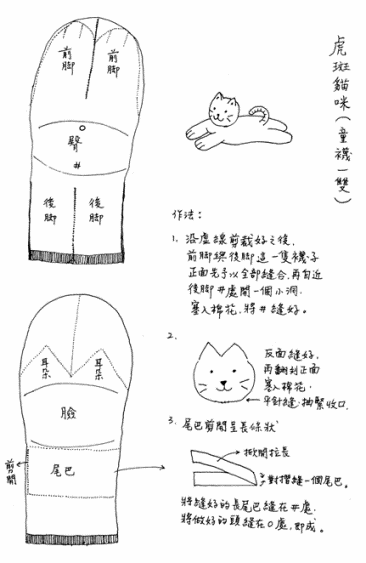 虎斑貓咪(童襪一雙)
前腳 前腳
臀
#
後腳 後腳
作法:
1. 沿虛線剪裁好之後,
前腳與後腳這一隻襪子
正面先予以全部縫合,再自近
後腳#處開一個小洞.
塞入棉花,將#縫好。
2.
反面縫好.
再翻到正面
塞入棉花.
平針縫.抽緊收口.
3. 尾巴剪開呈長條狀
掀開拉長
對摺縫一個尾巴。
將縫好的長尾巴縫在#處.
將做好的頭縫在O處,即成。
耳朵 耳朵
臉
尾巴
剪開